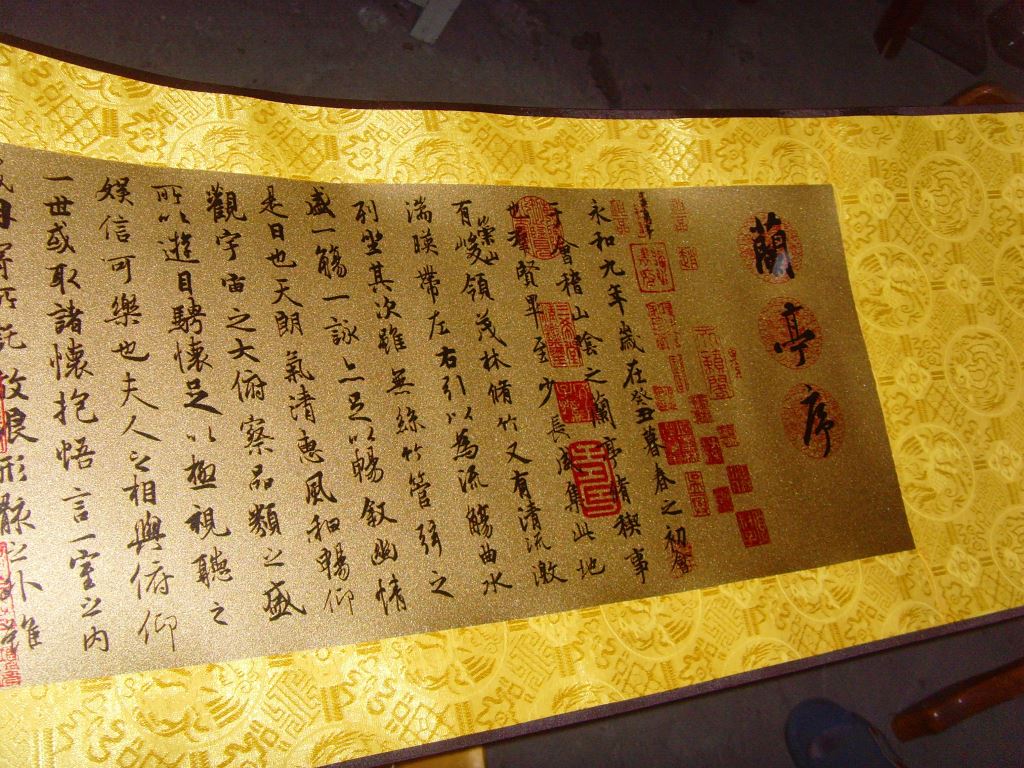 蘭亭序
永和九年歲在癸丑暮春之初會
于會稽山陰之蘭亭脩禊事
也羣賢畢至少長咸集此地
有崇山峻領茂林脩竹又有清流激
湍暎帶左右引以為流觴曲水
列坐其次雖無絲竹管弦之
盛一觴一詠亦足以暢叙幽情
是日也天朗氣清惠風和暢仰
觀宇宙之大俯察品類之盛
所以遊目騁懷足以極視聽之
娛信可樂也夫人之相與俯仰
一世或取諸懷抱悟言一室之內
或因寄所託放浪形骸之外雖